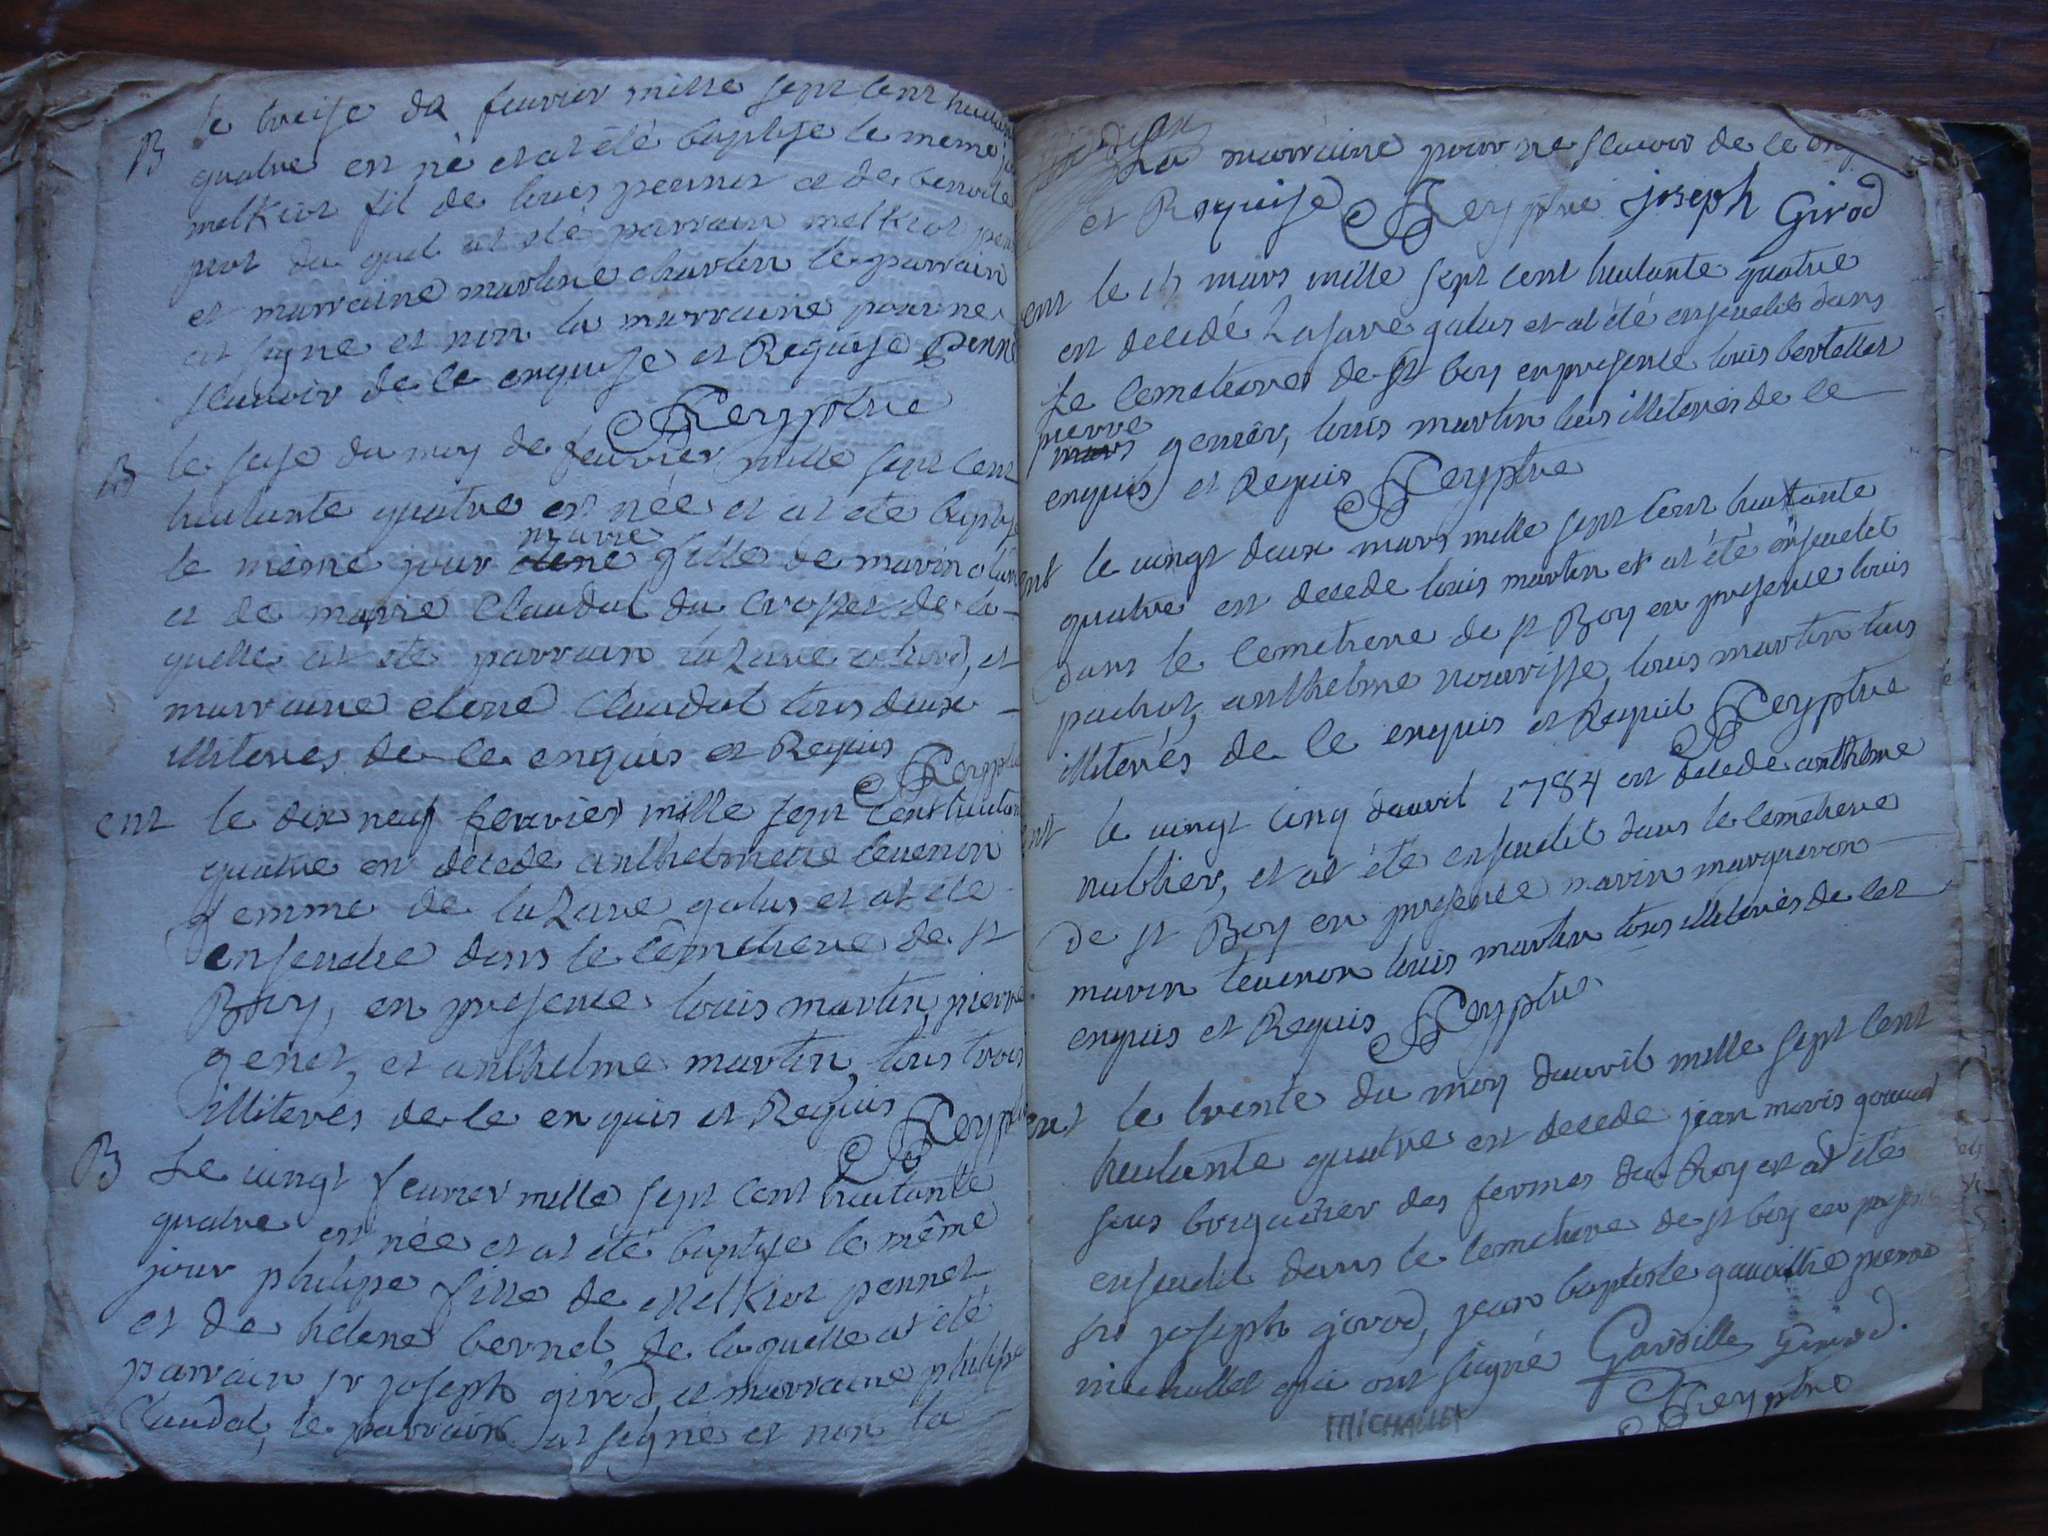 B le treise de fevrier mille sept cent huitan
quatre est né et at été baptise le meme jo
melkiot fil de louis pernet et de benoite
prot du quel at été parrain melkiot per
et marraine martine charlin le parrain
at signe et non la marraine pour ne
scavoir de ce enquise et Requise Penne
Reyptre
B le sese du moy de fevrier mille sept cent
huitante quatre est née et at ete baptise
le mème jour marie fille de marin
et de marie Claudat du crosset de la
quelle at ete parrain lazare et
marraine elene Claudat tous deux
illiteres de ce enquis et Requis
Reyptre
ent le dix neuf fevrier mille sept cent huitan
quatre est décede anthelmette tevenon
femme de lazare galus et at été
ensevelie dans le cemetiere de st
Boy, en presence louis martin, pierre
genet, et anthelme martin, tous trois
illiterés de ce enquis et Requis
Reyptre
B Le vingt fevrier mille sept cent huitante
quatre est née et at été baptise le même
jour philippe fille de Melkiot pennet
et de helene bernet, de laquelle at été
parrain sr joseph girod, et marraine philippe
Claudat, le parrain at signé et non la
La marraine pour ne scavoir de ce enq
et Requise Reyptre joseph Girod
ent le 15 mars mille sept cent huitante quatre
est decedé Lasare galus et at été ensevelit dans
Le cemetieres de st boy en presente louis bertellet
pierre
mars genier, louis martin tous illiterés de ce
enquis et Requis Reyptre
ent le vingt deux mars mille sept cent huitante
quatre est decede louis martin et at été ensevelit
dans le cemetiere de st Boy en presence louis
pachot, anthelme nourisse, louis martin tous
illiterés de ce enquis et Requit Reyptre
ent le vingt cinq d'avril 1784 est decede anthelme
nublier, et at été ensevelit dans le cemetiere
de st Boy en presence marin marqueron
marin tevenon louis martin tous illiterés de cet
enquis et Requis Reyptre
ent le trente du moy d'avril mille sept cent
huitante quatre est decede jean maris
sous brigadier des fermes du Roy et at été
ensevelit dans le cemetiere de st boy en presen
srs joseph girod, jean baptiste gavoille pierre
michallet qui ont signé Gavoille Girod.
MICHALLET
Reyptre